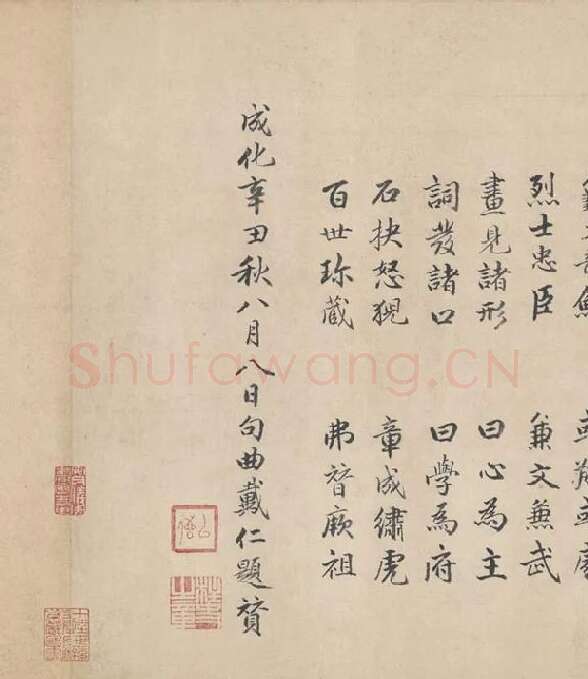 烈士忠臣 兼文兼武
畫見諸形 曰心為主
詞發諸口 曰學為府
石抉怒猊 章成繡虎
百世珍藏 弗替厥祖
成化辛丑秋八月八日句曲戴仁題贊
Shufawang.CN